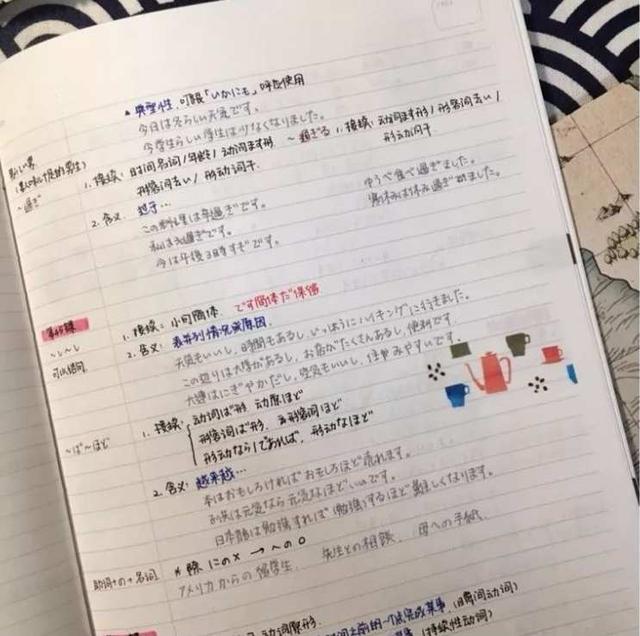 ▲ 典型性. 可跟「いかにも」呼应使用
今日は冬らしい天気です。
今学生らしい学生は少なくなりました。
~過ぎ
1. 接续: 时间名词/年龄/动词ます形
形容词去い/形动词干.
~過ぎる 1. 接续: 动词ます形/形容词去い/
形动词干
2. 含义: 过于…
ゆうべ食べ過ぎました。
この料理は辛過ぎです。
今は午後3時すぎです。
~し~し
1. 接续: 小句简体. です简体だ保留
2. 含义: 表并列情况或原因.
天気もいいし、時間もあるし、いっしょうにハイキングに行きました。
この辺りは大学があるし、お店がたくさんあるし、便利です
大連はにぎやかだし、空気もいいし、住みやすいです。
~ば~ほど
1. 接续: 动词ば形. 动原ほど
形容词ば形. 形容词ほど
形动なら/であれば. 形动なほど
2. 含义: 越来越…
本はおもしろければおもしろほど売れます。
お人は元気なら元気なほどいいです。
日本語は勉強すれば(勉強)するほど難しくなります。
助词+の+名词
* 除 にの× → への○
アメリカからの留学生. 先生との相談. 母への手紙